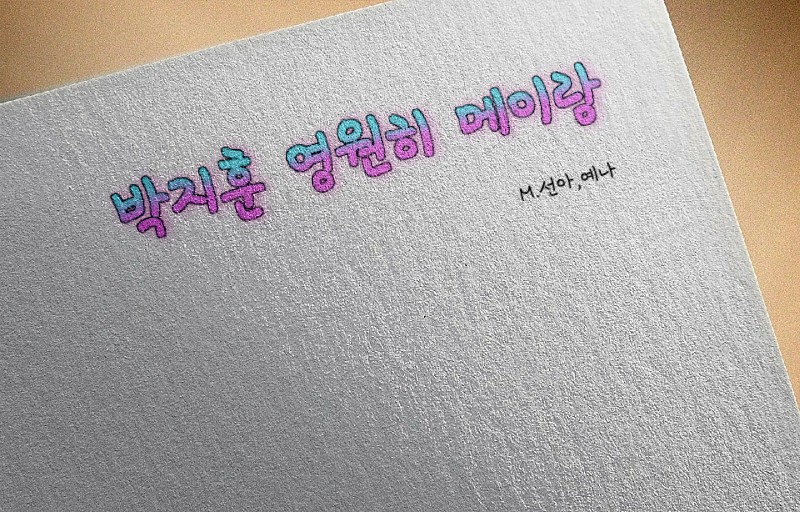 박지훈 영원히 메이랑
M.선아,예나